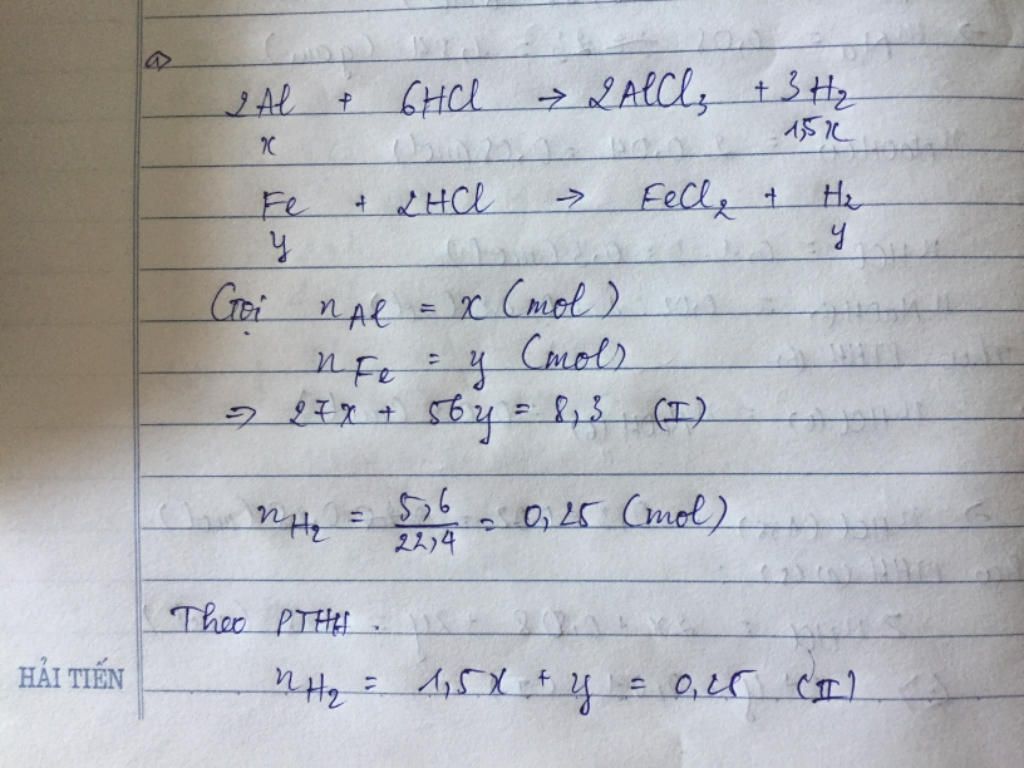 1)
2Al + 6HCl → 2AlCl3 + 3H2
x 1,5x
Fe + 2HCl → FeCl2 + H2
y y
Gọi nAl = x (mol)
nFe = y (mol)
⇒ 27x + 56y = 8,3 (I)
nH2 = 5,6/22,4 = 0,25 (mol)
Theo PTHH.
nH2 = 1,5x + y = 0,25 (II)
HẢI TIẾN